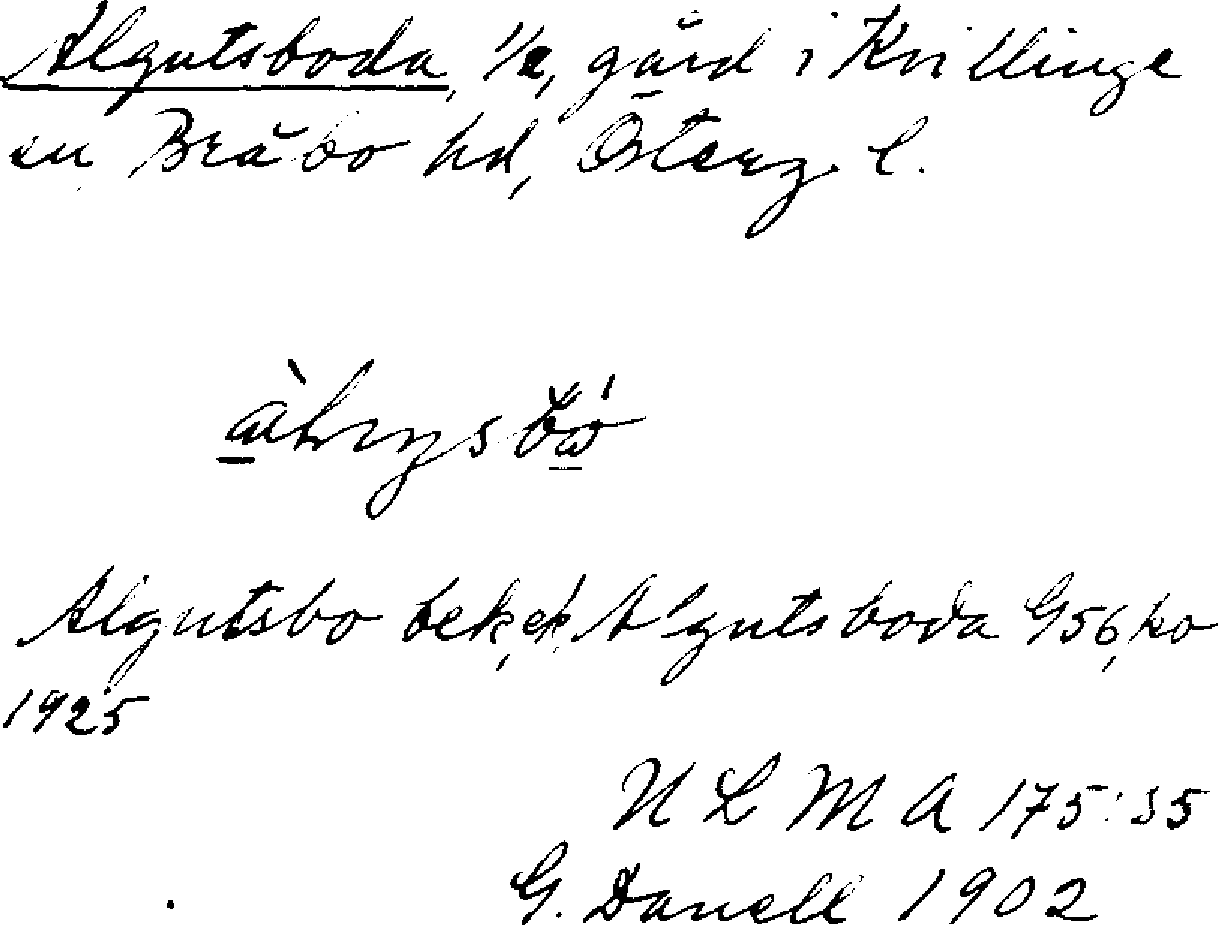 Algutsboda, 1/2, gård i Kvillinge
sn Bråbo hd, Österg. l.
Algutsbo bek, ek, Algutsboda G56, ko
1925
ULMA 175:35
G. Danell 1902